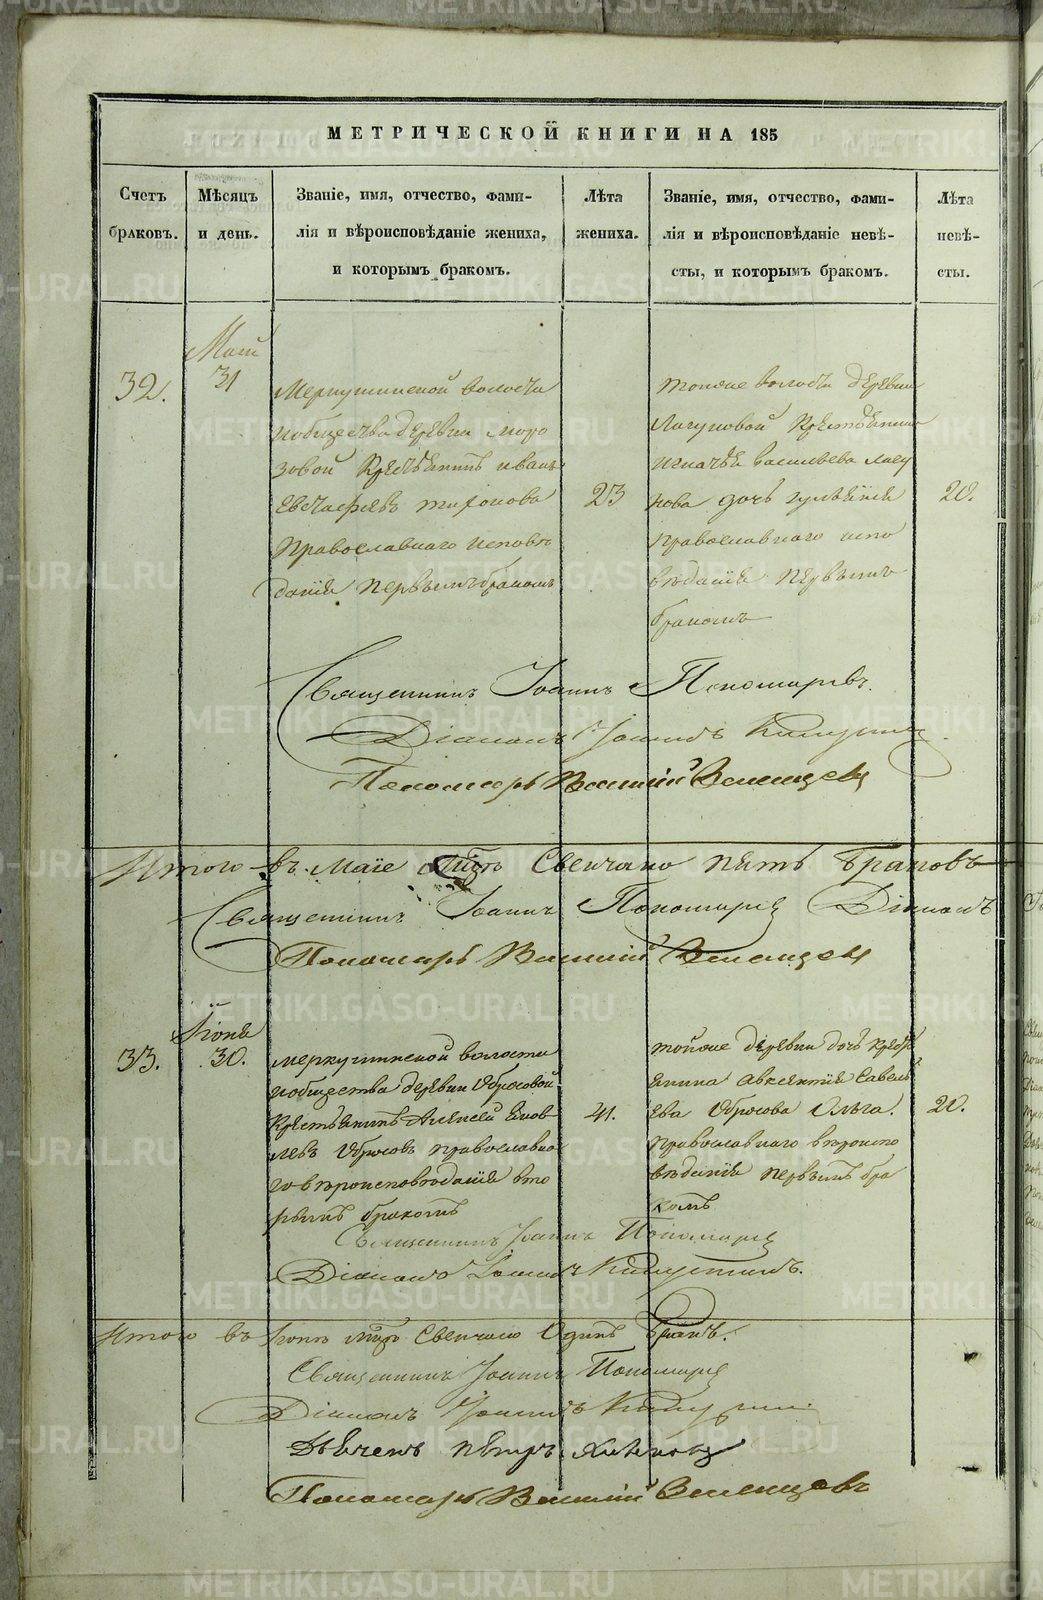 МЕТРИЧЕСКОЙ КНИГИ НА 185
Счетъ браковъ.
Мѣсяцъ и день.
Званіе, имя, отчество, фами-
лія и вѣроисповѣданіе жениха,
и которымъ бракомъ.
Лѣта жениха.
Званіе, имя, отчество, фами-
лія и вѣроисповѣданіе невѣ-
сты, и которымъ бракомъ.
Лѣта невѣ-
сты.
32.
Маія
31
Меркушинской волости
и общества деревни Моро
зовой Крестьянинъ Иванъ
Евстафьевъ Тифонова
Православнаго исповѣ
данія первымъ бракомъ
23
тойже волости деревни
Лагуновой Крестьянина
Игнатья Васильева Лагу
нова дочь
Православнаго испо
вѣданія первымъ
бракомъ
20.
Священникъ Іоаннъ Пономаревъ.
Діаконъ Іоаннъ
Пономарь Василій Зеленцовъ
Итого въ Маіе мцѣ Свенчано пять Браковъ
Священникъ Іоаннъ Пономаревъ Діаконъ
Пономарь Василій Зеленцовъ
33.
Іюня
30.
Меркушинской волости
и общества деревни Обросовой
Крестьянинъ Алексей Яков
левъ Обросовъ православна
го вѣроисповѣданія вто
рымъ бракомъ
41.
тойже деревни дочь крестья
янина Авксентія Савель
ева Обросова Ольга.
Православнаго вѣроиспо
вѣданія первымъ бра
комъ
20.
Священникъ Іоаннъ Пономаревъ
Діаконъ Іоаннъ
Итого въ Іюнѣ мцѣ Свенчано Одинъ Бракъ.
Священникъ Іоаннъ Пономаревъ
Діаконъ Іоаннъ
Дьячекъ Петръ
Пономарь Василій Зеленцовъ
METRIKI.GASO-URAL.RU